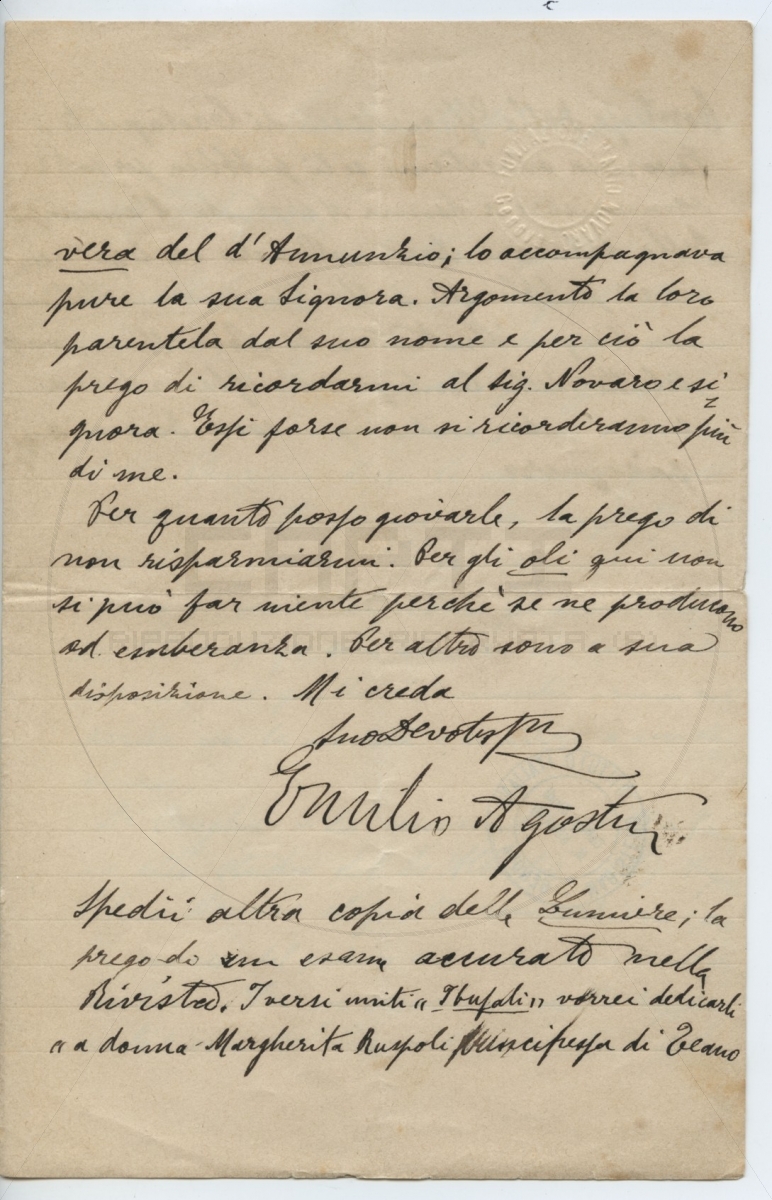 vera del d'Annunzio; lo accompagnava
pure la sua Signora. Argomento la loro
parentela dal suo nome e per ciò la
prego di ricordarmi al sig. Novaro e si
gnora. Essi forse non si ricorderanno più
di me.
Per quanto posso giovarle, la prego di
non risparmiarmi. Per gli oli qui non
si può far niente perchè se ne producono
ad esuberanza. Per altro sono a sua
disposizione. Mi creda
Suo Devotissmo
Emilio Agostini
Spedii altra copia delle Lumiere; la
prego di un esame accurato nella
Rivista. I versi uniti "I bufali" vorrei dedicarli
"a donna Margherita Ruspoli principessa di Teano